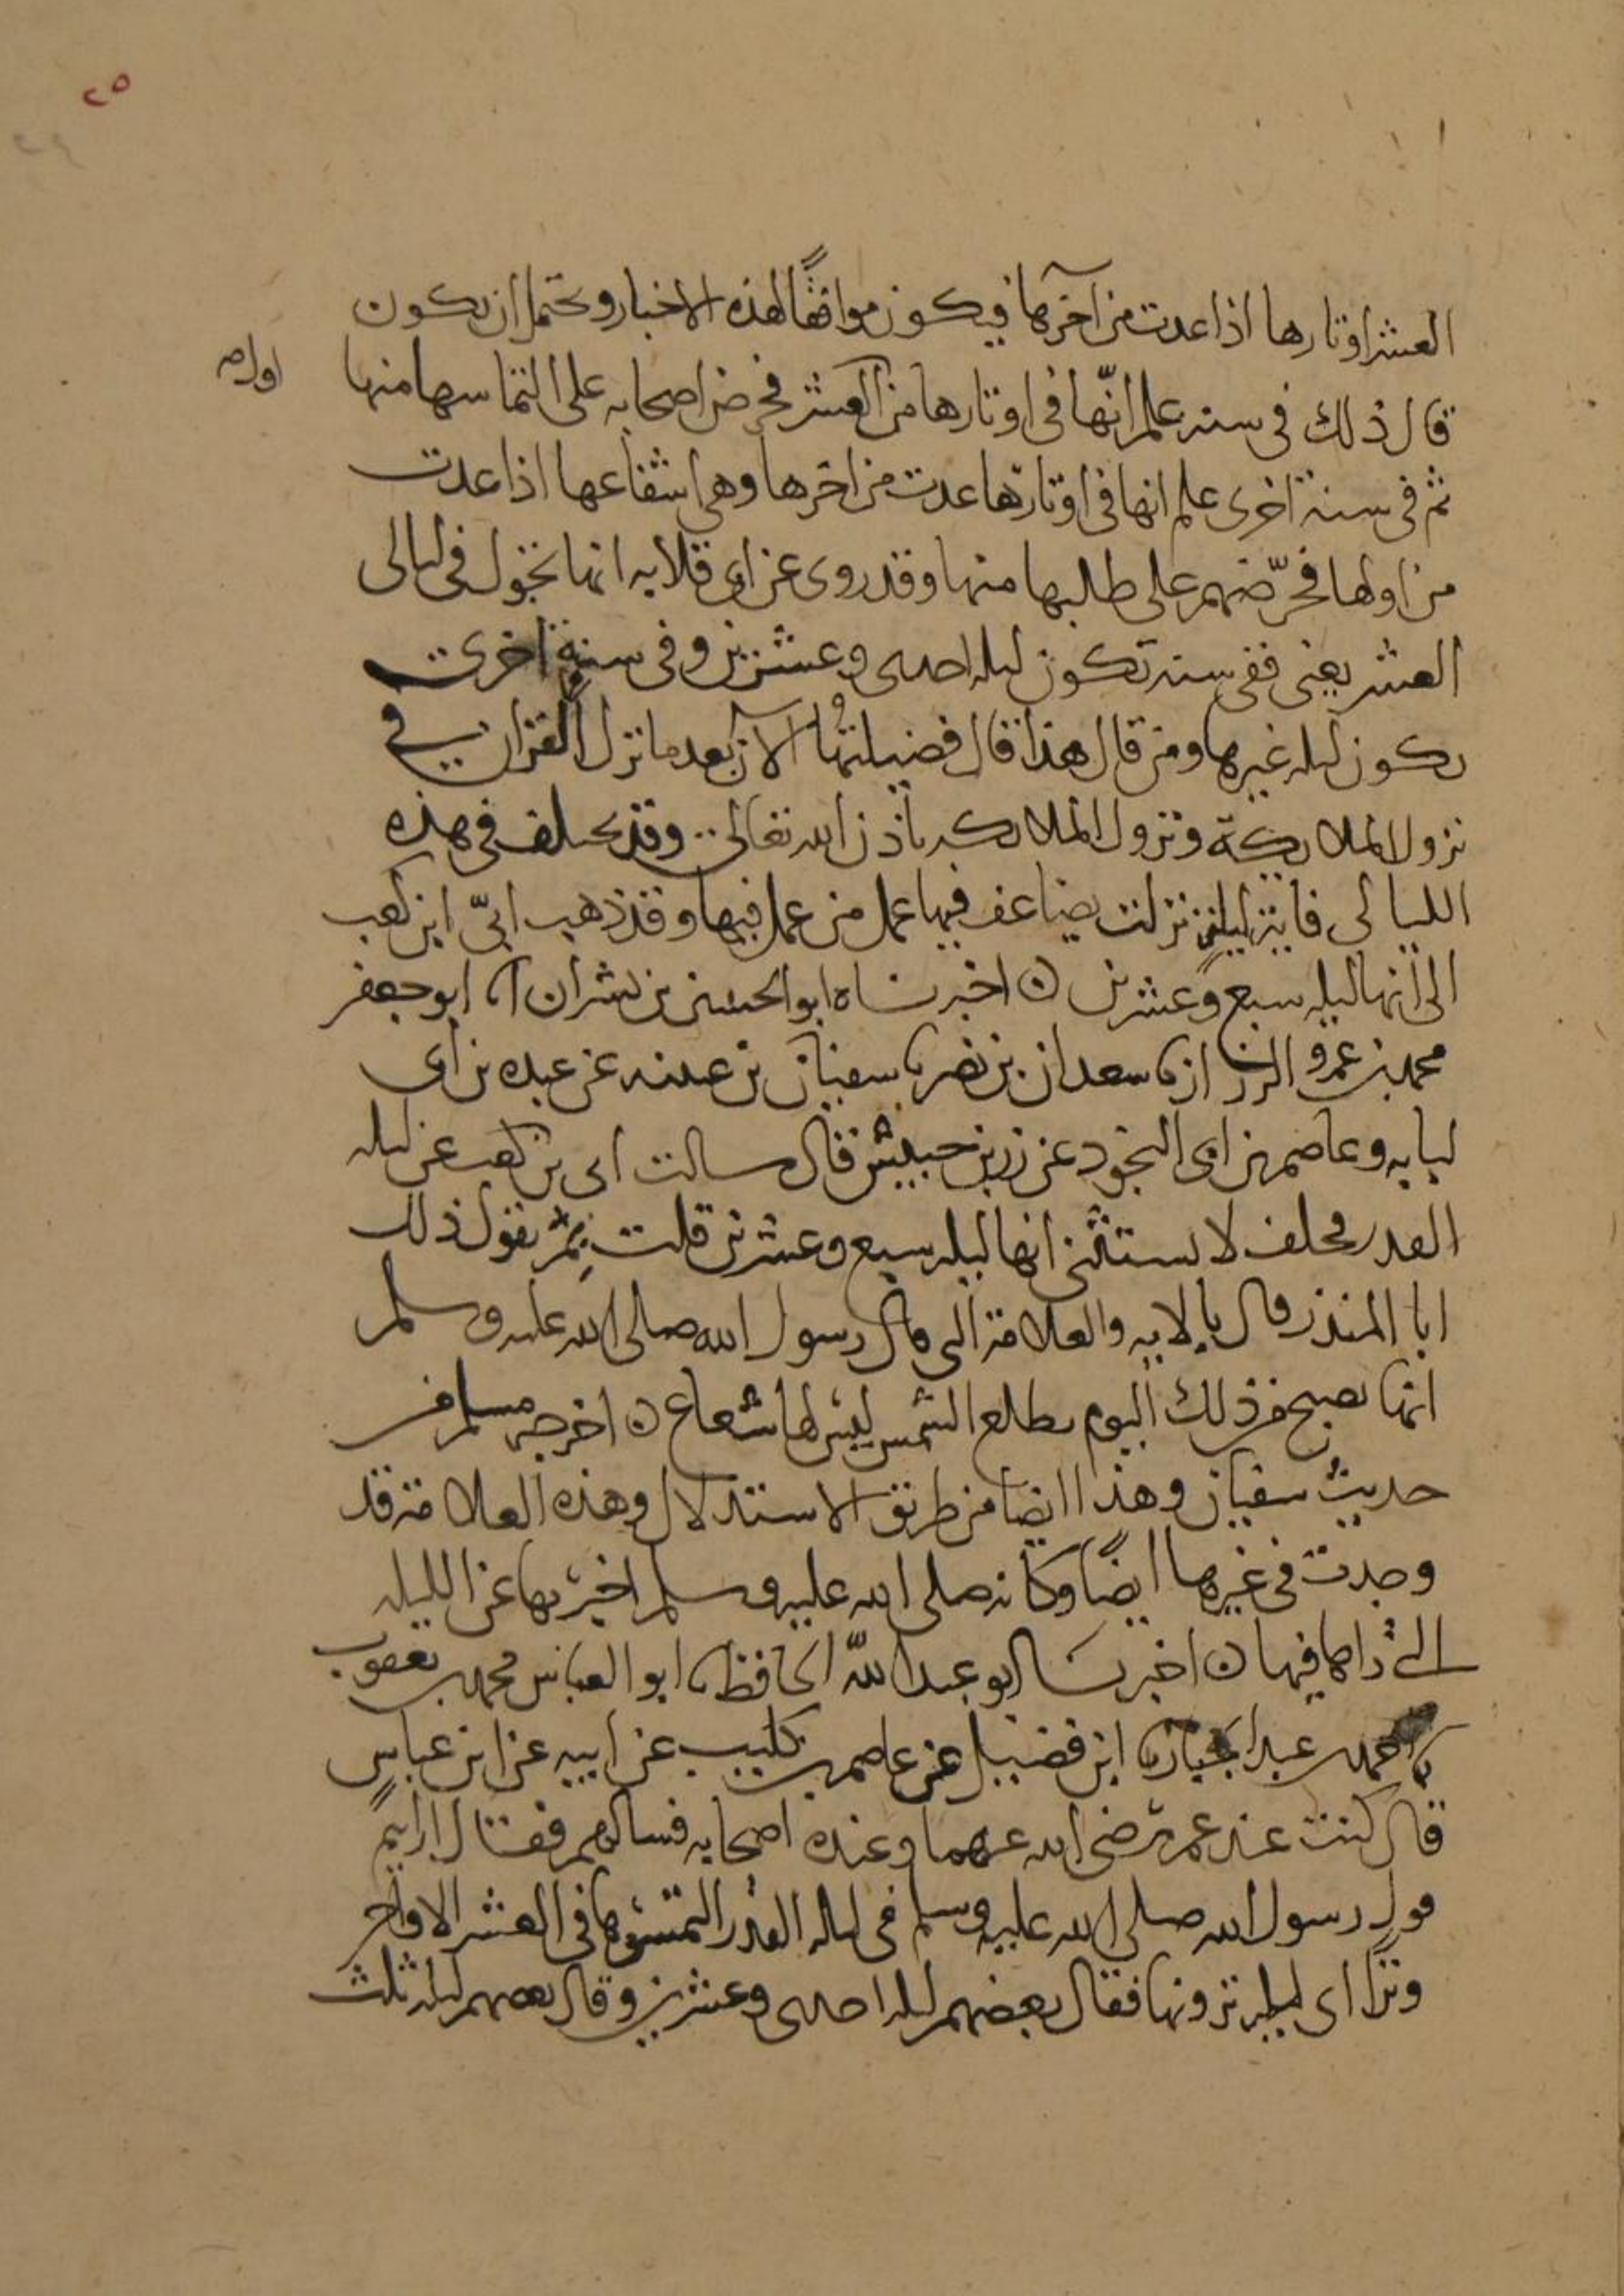 ٢٥
٢٤
العشر اوتارها اذا عدت من آخرها فيكون موافقًا لهذه الاخبار ويحتمل ان يكون
قال ذلك في سنه علم انّها في اوتارها من العشر فحرض اصحابه على التماسها منها
ثم في سنة اخرى علم انها في اوتارها عدت من اخرها وهي اشفاعها اذا عدت
من اولها فحرّضهم على طلبها منها وقد روى عن ابى قلابه انها تجول في ليالى
العشر يعنى ففي سنه تكون ليله احدى وعشرين وفي سنة اخرى
يكون ليله غيرها ومن قال هذا قال فضيلتها الآن بعد ما نزل القران في
نزول الملايكة ونزول الملايكه باذن الله تعالى وقد يختلف في هذه
الليالى فاىّ ليله نزلت يضاعف فيها عمل من عمل فيها وقد ذهب ابىّ ابن كعب
الى انها ليله سبع وعشرين اخبرناه ابو الحسين بن بشران انا ابو جعفر
محمد بن عمرو الرزاز نا سعدان بن نصر نا سفيان بن عيينه عن عبده بن ابى
لبابه وعاصم بن ابى النجود عن زر بن حبيش قال سالت ابى بن كعب عن ليله
القدر فحلف لا يستثنى انها ليله سبع وعشرين قلت بم تقول ذلك
ابا المنذر قال بالايه والعلامة التى قال رسول الله صلى الله عليه وسلم
انها تصبح من ذلك اليوم تطلع الشمس ليس لها شعاع اخرجه مسلم من
حديث سفيان وهذا ايضا من طريق الاستدلال وهذه العلامة قد
وجدت في غيرها ايضًا وكانه صلى الله عليه وسلم اخبر بها عن الليله
التى راها فيها اخبرنا ابو عبد الله الحافظ نا ابو العباس محمد بن يعقوب
نا احمد بن عبد الجبار نا ابن فضيل عن عاصم بن كليب عن ابيه عن ابن عباس
قال كنت عند عمر رضى الله عنهما وعنده اصحابه فسالهم فقال ارايتم
قول رسول الله صلى الله عليه وسلم في ليله القدر التمسوها في العشر الاواخر
وترا اى ليله ترونها فقال بعضهم ليله احدى وعشرين وقال بعضهم ليله ثلث